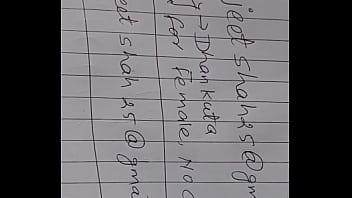 jeet shah25@gm
> Dhankuta
for female, No
eet shah25@gma